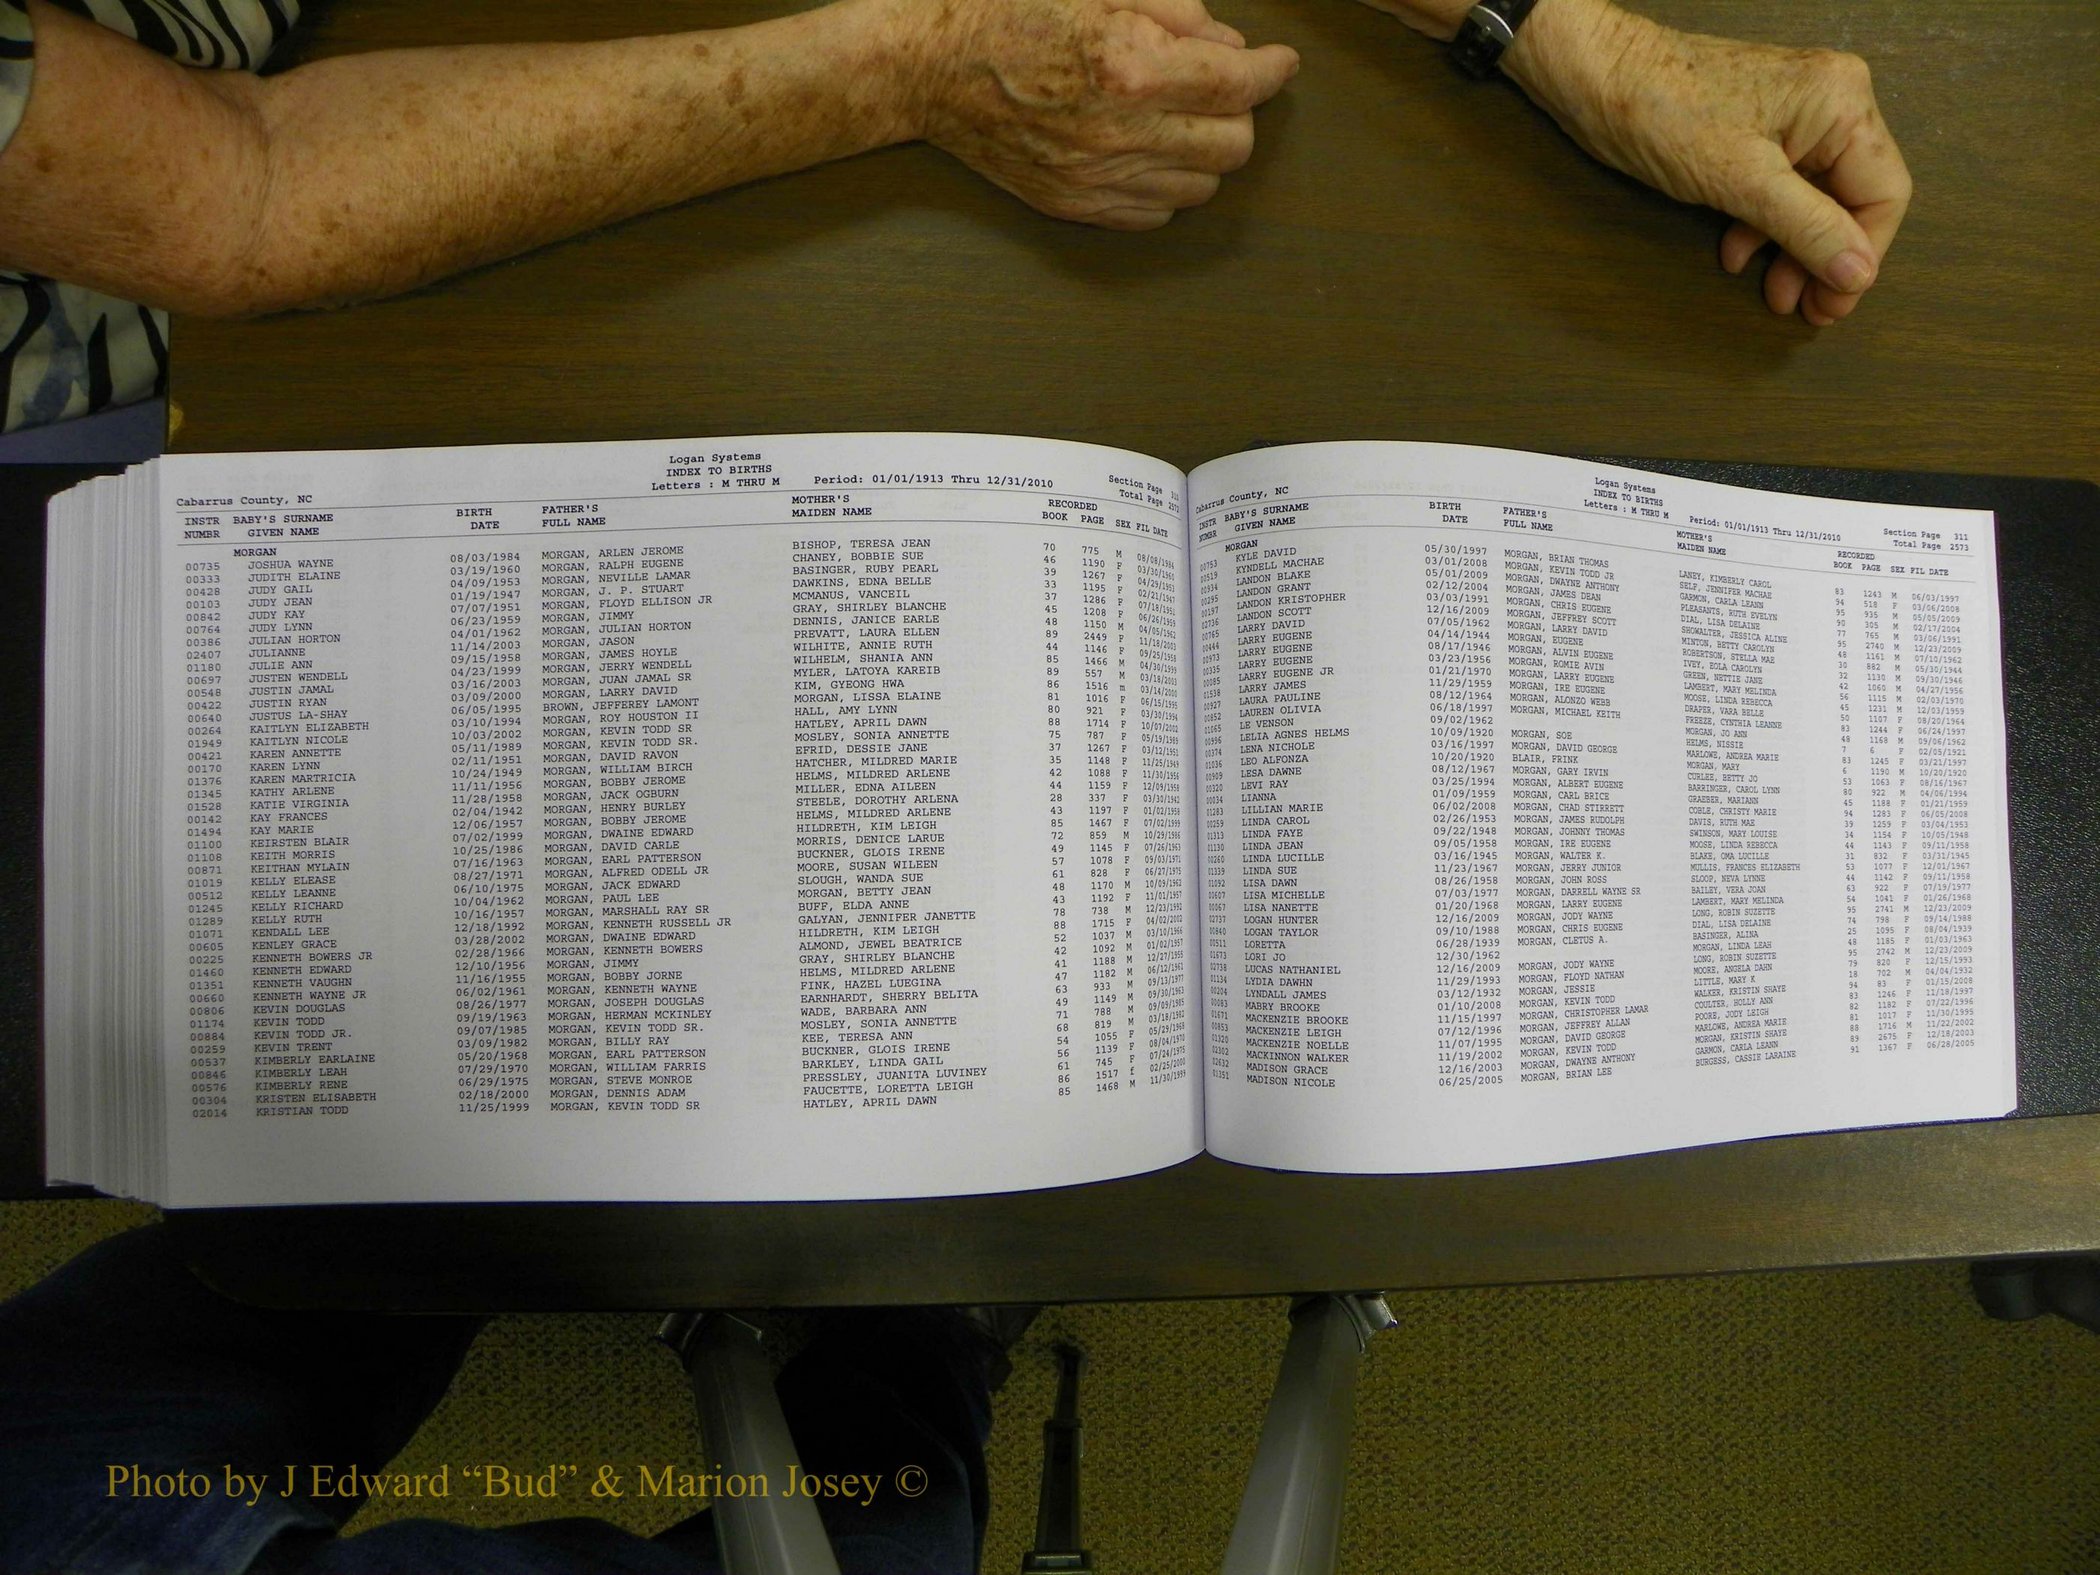 Logan Systems
INDEX TO BIRTHS
Letters : M THRU M Period: 01/01/1913 Thru 12/31/2010 Section Page 311
Cabarrus County, NC Total Page 2572
INSTR BABY'S SURNAME BIRTH FATHER'S MOTHER'S RECORDED
NUMBR GIVEN NAME DATE FULL NAME MAIDEN NAME BOOK PAGE SEX FIL DATE
MORGAN
00735 JOSHUA WAYNE 08/03/1984 MORGAN, ARLEN JEROME BISHOP, TERESA JEAN 70 775 M 08/08/1984
00333 JUDITH ELAINE 03/19/1960 MORGAN, RALPH EUGENE CHANEY, BOBBIE SUE 46 1190 F 03/30/1960
00428 JUDY GAIL 04/09/1953 MORGAN, NEVILLE LAMAR BASINGER, RUBY PEARL 39 1267 F 04/29/1953
00103 JUDY JEAN 01/19/1947 MORGAN, J. P. STUART DAWKINS, EDNA BELLE 33 1195 F 02/21/1947
00842 JUDY KAY 07/07/1951 MORGAN, FLOYD ELLISON JR MCMANUS, VANCEIL 37 1286 F 07/18/1951
00764 JUDY LYNN 06/23/1959 MORGAN, JIMMY GRAY, SHIRLEY BLANCHE 45 1208 F 06/26/1959
00386 JULIAN HORTON 04/01/1962 MORGAN, JULIAN HORTON DENNIS, JANICE EARLE 48 1150 M 04/05/1962
02407 JULIANNE 11/14/2003 MORGAN, JASON PREVATT, LAURA ELLEN 89 2449 F 11/18/2003
01180 JULIE ANN 09/15/1958 MORGAN, JAMES HOYLE WILHITE, ANNIE RUTH 44 1146 F 09/25/1958
00697 JUSTEN WENDELL 04/23/1999 MORGAN, JERRY WENDELL WILHELM, SHANIA ANN 85 1466 M 04/30/1999
00548 JUSTIN JAMAL 03/16/2003 MORGAN, JUAN JAMAL SR MYLER, LATOYA KAREIB 89 557 M 03/18/2003
00422 JUSTIN RYAN 03/09/2000 MORGAN, LARRY DAVID KIM, GYEONG HWA 86 1516 m 03/14/2000
00640 JUSTUS LA-SHAY 06/05/1995 BROWN, JEFFEREY LAMONT MORGAN, LISSA ELAINE 81 1016 F 06/15/1995
00264 KAITLYN ELIZABETH 03/10/1994 MORGAN, ROY HOUSTON II HALL, AMY LYNN 80 921 F 03/30/1994
01949 KAITLYN NICOLE 10/03/2002 MORGAN, KEVIN TODD SR HATLEY, APRIL DAWN 88 1714 F 10/07/2002
00421 KAREN ANNETTE 05/11/1989 MORGAN, KEVIN TODD SR. MOSLEY, SONIA ANNETTE 75 787 F 05/19/1989
00170 KAREN LYNN 02/11/1951 MORGAN, DAVID RAVON EFRID, DESSIE JANE 37 1267 F 03/12/1951
01376 KAREN MARTRICIA 10/24/1949 MORGAN, WILLIAM BIRCH HATCHER, MILDRED MARIE 35 1148 F 11/25/1949
01345 KATHY ARLENE 11/11/1956 MORGAN, BOBBY JEROME HELMS, MILDRED ARLENE 42 1088 F 11/30/1956
01528 KATIE VIRGINIA 11/28/1958 MORGAN, JACK OGBURN MILLER, EDNA AILEEN 44 1159 F 12/09/1958
00142 KAY FRANCES 02/04/1942 MORGAN, HENRY BURLEY STEELE, DOROTHY ARLENA 28 337 F 03/30/1942
01494 KAY MARIE 12/06/1957 MORGAN, BOBBY JEROME HELMS, MILDRED ARLENE 43 1197 F 01/02/1958
01100 KEIRSTEN BLAIR 07/02/1999 MORGAN, DWAINE EDWARD HILDRETH, KIM LEIGH 85 1467 F 07/02/1999
01108 KEITH MORRIS 10/25/1986 MORGAN, DAVID CARLE MORRIS, DENICE LARUE 72 859 M 10/29/1986
00871 KEITHAN MYLAIN 07/16/1963 MORGAN, EARL PATTERSON BUCKNER, GLOIS IRENE 49 1145 F 07/26/1963
01019 KELLY ELEASE 08/27/1971 MORGAN, ALFRED ODELL JR MOORE, SUSAN WILEEN 57 1078 F 09/03/1971
00512 KELLY LEANNE 06/10/1975 MORGAN, JACK EDWARD SLOUGH, WANDA SUE 61 828 F 06/27/1975
01245 KELLY RICHARD 10/04/1962 MORGAN, PAUL LEE MORGAN, BETTY JEAN 48 1170 M 10/09/1962
01289 KELLY RUTH 10/16/1957 MORGAN, MARSHALL RAY SR BUFF, ELDA ANNE 43 1192 F 11/01/1957
01071 KENDALL LEE 12/18/1992 MORGAN, KENNETH RUSSELL JR GALYAN, JENNIFER JANETTE 78 738 M 12/23/1992
00605 KENLEY GRACE 03/28/2002 MORGAN, DWAINE EDWARD HILDRETH, KIM LEIGH 88 1715 F 04/02/2002
00225 KENNETH BOWERS JR 02/28/1966 MORGAN, KENNETH BOWERS ALMOND, JEWEL BEATRICE 52 1037 M 03/10/1966
01460 KENNETH EDWARD 12/10/1956 MORGAN, JIMMY GRAY, SHIRLEY BLANCHE 42 1092 M 01/02/1957
01351 KENNETH VAUGHN 11/16/1955 MORGAN, BOBBY JORNE HELMS, MILDRED ARLENE 41 1188 M 12/27/1955
00660 KENNETH WAYNE JR 06/02/1961 MORGAN, KENNETH WAYNE FINK, HAZEL LUEGINA 47 1182 M 06/12/1961
00806 KEVIN DOUGLAS 08/26/1977 MORGAN, JOSEPH DOUGLAS EARNHARDT, SHERRY BELITA 63 933 M 09/13/1977
01174 KEVIN TODD 09/19/1963 MORGAN, HERMAN MCKINLEY WADE, BARBARA ANN 49 1149 M 09/30/1963
00884 KEVIN TODD JR. 09/07/1985 MORGAN, KEVIN TODD SR. MOSLEY, SONIA ANNETTE 71 788 M 09/09/1985
00259 KEVIN TRENT 03/09/1982 MORGAN, BILLY RAY KEE, TERESA ANN 68 819 M 03/18/1982
00537 KIMBERLY EARLAINE 05/20/1968 MORGAN, EARL PATTERSON BUCKNER, GLOIS IRENE 54 1055 F 05/29/1968
00846 KIMBERLY LEAH 07/29/1970 MORGAN, WILLIAM FARRIS BARKLEY, LINDA GAIL 56 1139 F 08/04/1970
00576 KIMBERLY RENE 06/29/1975 MORGAN, STEVE MONROE PRESSLEY, JUANITA LUVINEY 61 745 F 07/24/1975
00304 KRISTEN ELISABETH 02/18/2000 MORGAN, DENNIS ADAM FAUCETTE, LORETTA LEIGH 86 1517 f 02/25/2000
02014 KRISTIAN TODD 11/25/1999 MORGAN, KEVIN TODD SR HATLEY, APRIL DAWN 85 1468 M 11/30/1999
Logan Systems
INDEX TO BIRTHS
Letters : M THRU M Period: 01/01/1913 Thru 12/31/2010 Section Page 311
Cabarrus County, NC Total Page 2573
INSTR BABY'S SURNAME BIRTH FATHER'S MOTHER'S RECORDED
NUMBR GIVEN NAME DATE FULL NAME MAIDEN NAME BOOK PAGE SEX FIL DATE
MORGAN
00753 KYLE DAVID 05/30/1997 MORGAN, BRIAN THOMAS LANEY, KIMBERLY CAROL 83 1243 M 06/03/1997
00519 KYNDELL MACHAE 03/01/2008 MORGAN, KEVIN TODD JR SELF, JENNIFER MACHAE 94 518 F 03/06/2008
00934 LANDON BLAKE 05/01/2009 MORGAN, DWAYNE ANTHONY GARMON, CARLA LEANN 95 935 M 05/05/2009
00295 LANDON GRANT 02/12/2004 MORGAN, JAMES DEAN PLEASANTS, RUTH EVELYN 90 305 M 02/17/2004
00197 LANDON KRISTOPHER 03/03/1991 MORGAN, CHRIS EUGENE DIAL, LISA DELAINE 77 765 M 03/06/1991
02736 LANDON SCOTT 12/16/2009 MORGAN, JEFFREY SCOTT SHOWALTER, JESSICA ALINE 95 2740 M 12/23/2009
00765 LARRY DAVID 07/05/1962 MORGAN, LARRY DAVID MINTON, BETTY CAROLYN 48 1161 M 07/10/1962
00444 LARRY EUGENE 04/14/1944 MORGAN, EUGENE ROBERTSON, STELLA MAE 30 882 M 05/30/1944
00973 LARRY EUGENE 08/17/1946 MORGAN, ALVIN EUGENE IVEY, EOLA CAROLYN 32 1130 M 09/30/1946
00335 LARRY EUGENE 03/23/1956 MORGAN, ROMIE AVIN GREEN, NETTIE JANE 42 1060 M 04/27/1956
00085 LARRY EUGENE JR 01/21/1970 MORGAN, LARRY EUGENE LAMBERT, MARY MELINDA 56 1115 M 02/03/1970
01538 LARRY JAMES 11/29/1959 MORGAN, IRE EUGENE MOOSE, LINDA REBECCA 45 1231 M 12/03/1959
00927 LAURA PAULINE 08/12/1964 MORGAN, ALONZO WEBB DRAPER, VARA BELLE 50 1107 F 08/20/1964
00852 LAUREN OLIVIA 06/18/1997 MORGAN, MICHAEL KEITH FREEZE, CYNTHIA LEANNE 83 1244 F 06/24/1997
01065 LE VENSON 09/02/1962 MORGAN, JO ANN 48 1168 M 09/06/1962
00996 LELIA AGNES HELMS 10/09/1920 MORGAN, SOE HELMS, NISSIE 7 6 F 02/05/1921
00374 LENA NICHOLE 03/16/1997 MORGAN, DAVID GEORGE MARLOWE, ANDREA MARIE 83 1245 F 03/21/1997
01036 LEO ALFONZA 10/20/1920 BLAIR, FRINK MORGAN, MARY 6 1190 M 10/20/1920
00909 LESA DAWNE 08/12/1967 MORGAN, GARY IRVIN CURLEE, BETTY JO 53 1063 F 08/16/1967
00320 LEVI RAY 03/25/1994 MORGAN, ALBERT EUGENE BARRINGER, CAROL LYNN 80 922 M 04/06/1994
00034 LIANNA 01/09/1959 MORGAN, CARL BRICE GRAEBER, MARIANN 45 1188 F 01/21/1959
01283 LILLIAN MARIE 06/02/2008 MORGAN, CHAD STIRRETT COBLE, CHRISTY MARIE 94 1283 F 06/05/2008
00259 LINDA CAROL 02/26/1953 MORGAN, JAMES RUDOLPH DAVIS, RUTH MAE 39 1259 F 03/04/1953
01313 LINDA FAYE 09/22/1948 MORGAN, JOHNNY THOMAS SWINSON, MARY LOUISE 34 1154 F 10/05/1948
01130 LINDA JEAN 09/05/1958 MORGAN, IRE EUGENE MOOSE, LINDA REBECCA 44 1143 F 09/11/1958
00260 LINDA LUCILLE 03/16/1945 MORGAN, WALTER K. BLAKE, OMA LUCILLE 31 832 F 03/31/1945
01339 LINDA SUE 11/23/1967 MORGAN, JERRY JUNIOR MULLIS, FRANCES ELIZABETH 53 1077 F 12/01/1967
01092 LISA DAWN 08/26/1958 MORGAN, JOHN ROSS SLOOP, NEVA LYNNE 44 1142 F 09/11/1958
00607 LISA MICHELLE 07/03/1977 MORGAN, DARRELL WAYNE SR BAILEY, VERA JOAN 63 922 F 07/19/1977
00067 LISA NANETTE 01/20/1968 MORGAN, LARRY EUGENE LAMBERT, MARY MELINDA 54 1041 F 01/26/1968
02737 LOGAN HUNTER 12/16/2009 MORGAN, JODY WAYNE LONG, ROBIN SUZETTE 95 2741 M 12/23/2009
00840 LOGAN TAYLOR 09/10/1988 MORGAN, CHRIS EUGENE DIAL, LISA DELAINE 74 798 F 09/14/1988
00511 LORETTA 06/28/1939 MORGAN, CLETUS A. BASINGER, ALINA 25 1095 F 08/04/1939
01673 LORI JO 12/30/1962 MORGAN, LINDA LEAH 48 1185 F 01/03/1963
02738 LUCAS NATHANIEL 12/16/2009 MORGAN, JODY WAYNE LONG, ROBIN SUZETTE 95 2742 M 12/23/2009
01134 LYDIA DAWHN 11/29/1993 MORGAN, FLOYD NATHAN MOORE, ANGELA DAHN 79 820 F 12/15/1993
00204 LYNDALL JAMES 03/12/1932 MORGAN, JESSIE LITTLE, MARY K 18 702 M 04/04/1932
00083 MABRY BROOKE 01/10/2008 MORGAN, KEVIN TODD WALKER, KRISTIN SHAYE 94 83 F 01/15/2008
01671 MACKENZIE BROOKE 11/15/1997 MORGAN, CHRISTOPHER LAMAR COULTER, HOLLY ANN 83 1246 F 11/18/1997
00853 MACKENZIE LEIGH 07/12/1996 MORGAN, JEFFREY ALLAN POORE, JODY LEIGH 82 1182 F 07/22/1996
01320 MACKENZIE NOELLE 11/07/1995 MORGAN, DAVID GEORGE MARLOWE, ANDREA MARIE 81 1017 F 11/30/1995
02302 MACKINNON WALKER 11/19/2002 MORGAN, KEVIN TODD MORGAN, KRISTIN SHAYE 88 1716 M 11/22/2002
02632 MADISON GRACE 12/16/2003 MORGAN, DWAYNE ANTHONY GARMON, CARLA LEANN 89 2675 F 12/18/2003
01351 MADISON NICOLE 06/25/2005 MORGAN, BRIAN LEE BURGESS, CASSIE LARAINE 91 1367 F 06/28/2005
Photo by J Edward “Bud” & Marion Josey ©